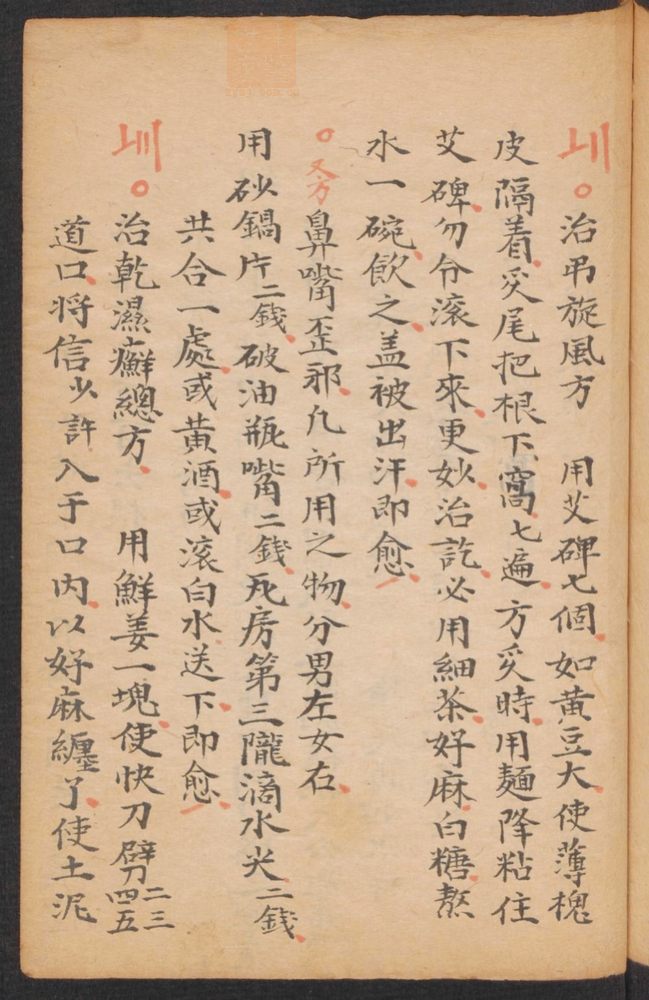 治吊旋風方 用艾碑七個如黄豆大使薄槐
皮隔着炙尾把根下窩七遍方炙時用麵降粘住
艾碑勿令滚下來更妙治訖必用細茶好麻白糖熬
水一碗飲之盖被出汗即愈
又方鼻嘴歪邪凢所用之物分男左女右
用砂鍋片二錢破油瓶嘴二錢死房第三隴滴水尖二錢
共合一處或黄酒或滚白水送下即愈
治乾濕癬總方 用鮮姜一塊使快刀劈二三四五
道口将信少許入于口内以好麻纏了使土泥